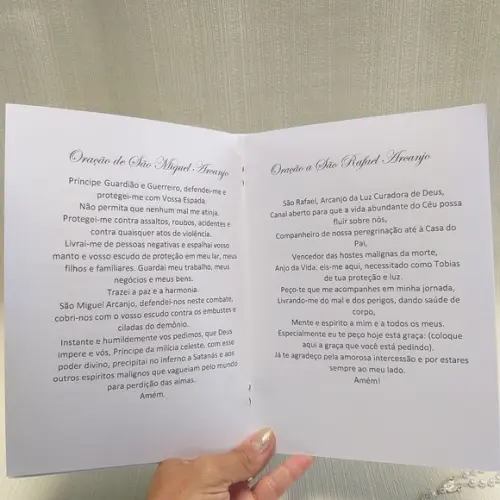 Oração de São Miguel Arcanjo
Príncipe Guardião e Guerreiro, defendei-me e
protegei-me com Vossa Espada.
Não permita que nenhum mal me atinja.
Protegei-me contra assaltos, roubos, acidentes e
contra quaisquer atos de violência.
Livrai-me de pessoas negativas e espalhai vosso
manto e vosso escudo de proteção em meu lar, meus
filhos e familiares. Guardai meu trabalho, meus
negócios e meus bens.
Trazei a paz e a harmonia.
São Miguel Arcanjo, defendei-nos neste combate,
cobri-nos com o vosso escudo contra os embustes e
ciladas do demônio.
Instante e humildemente vos pedimos, que Deus
impere e vós, Príncipe da milícia celeste, com esse
poder divino, precipitai no inferno a Satanás e aos
outros espíritos malignos que vagueiam pelo mundo
para perdição das almas.
Amém.
Oração a São Rafael Arcanjo
São Rafael, Arcanjo da Luz Curadora de Deus,
Canal aberto para que a vida abundante do Céu possa
fluir sobre nós,
Companheiro de nossa peregrinação até à Casa do
Pai,
Vencedor das hostes malignas da morte,
Anjo da Vida: eis-me aqui, necessitado como Tobias
de tua proteção e luz.
Peço-te que me acompanhes em minha jornada,
Livrando-me do mal e dos perigos, dando saúde de
corpo,
Mente e espírito a mim e a todos os meus.
Especialmente eu te peço hoje esta graça: (coloque
aqui a graça que você está pedindo).
Já te agradeço pela amorosa intercessão e por estares
sempre ao meu lado.
Amém!